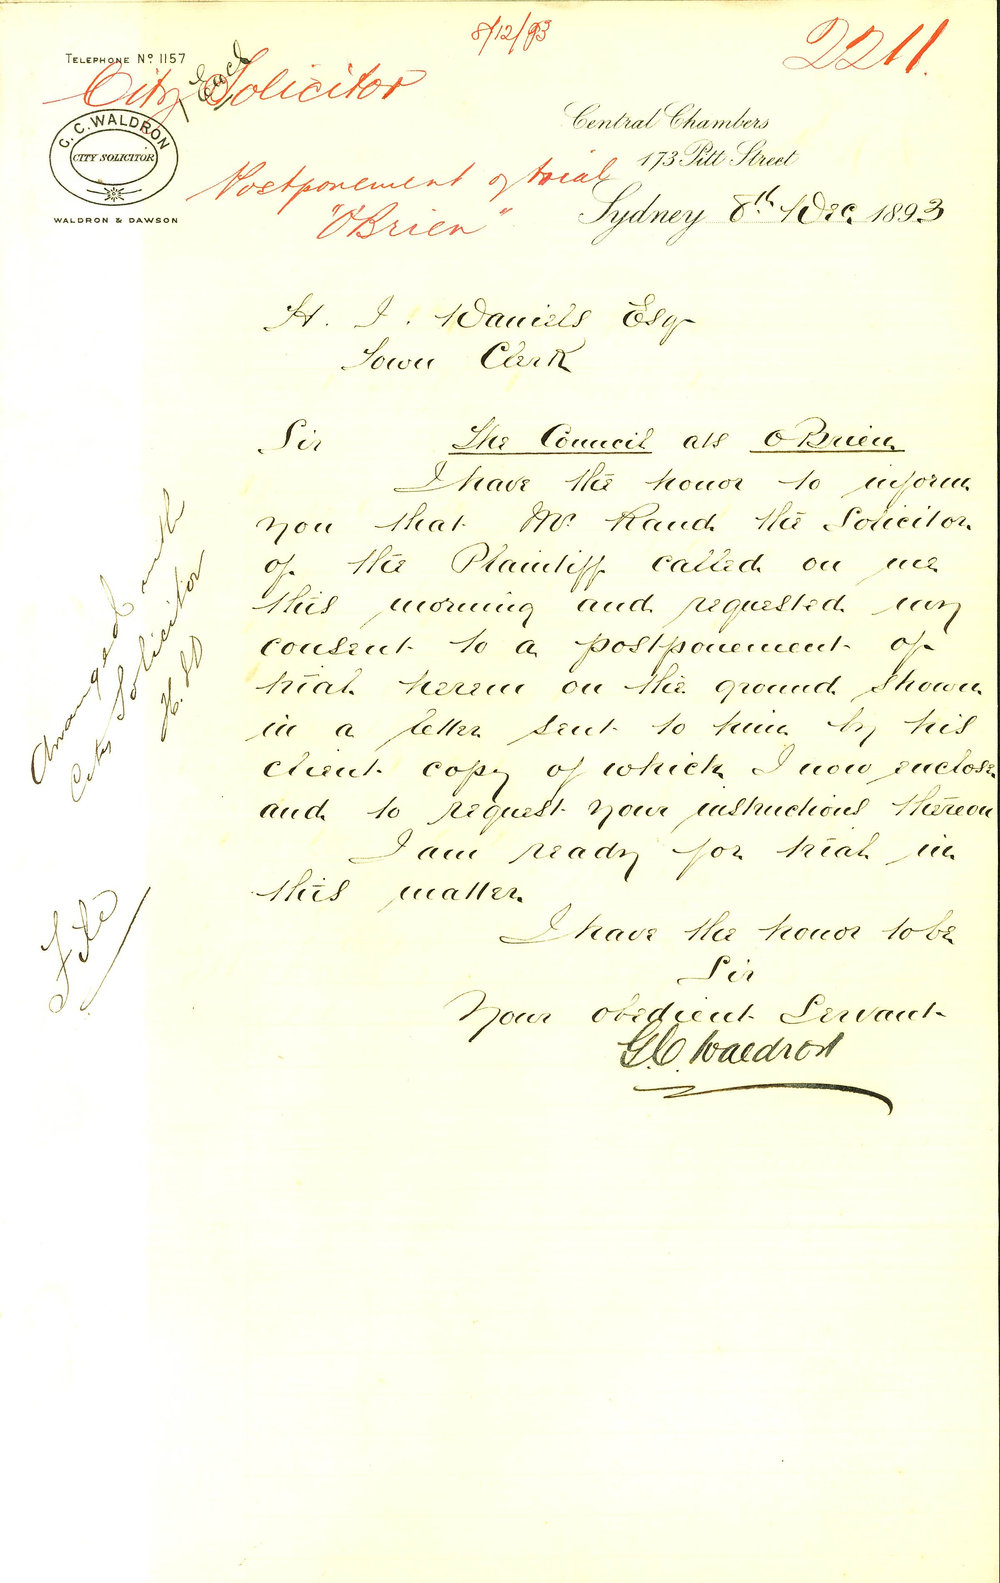 8/12/93
2211.
TELEPHONE No 1157
City Solicitor
1 Encl
G. C. WALDRON
CITY SOLICITOR
WALDRON & DAWSON
Central Chambers
173 Pitt Street
Postponement of trial
"O'Brien"
Sydney 8th Dec. 1893
H. J. Daniels Esq
Town Clerk
Sir The Council ats O'Brien
I have the honor to inform
you that Mr Rand the Solicitor
of the Plaintiff called on me
this morning and requested my
consent to a postponement of
trial herein on the ground shown
in a letter sent to him by his
client copy of which I now enclose
and to request your instructions thereon
I am ready for trial in
this matter
I have the honor to be
Sir
Your obedient Servant
G.C. Waldron
Arranged with
City Solicitor
File